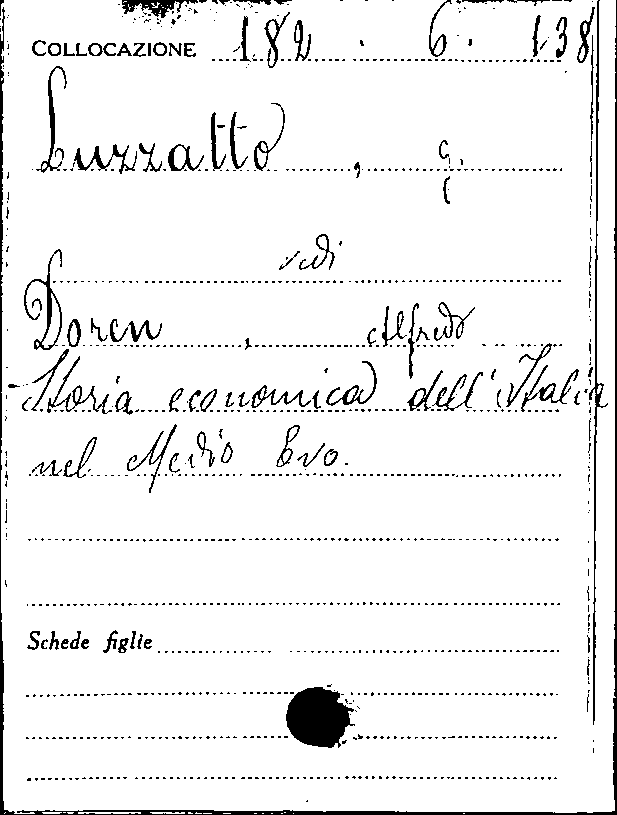 COLLOCAZIONE 182 . 6. 138
Luzzatto , G.
vedi
Doren , Alfredo
Storia economica dell'Italia
nel Medio Evo.
Schede figlie